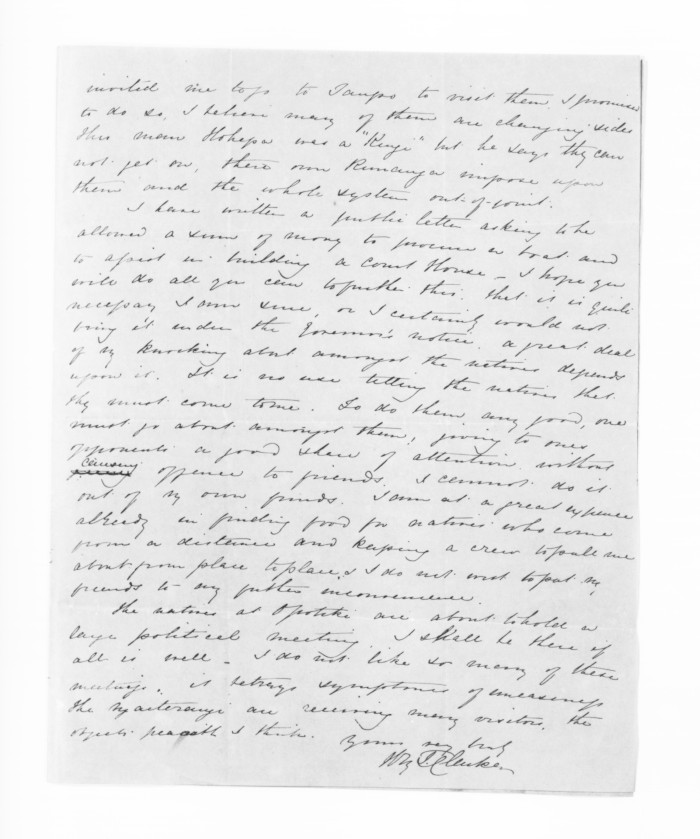 invited me to go to Taupo to visit them, I promised
to do so, I believe many of them are changing sides
this man Hohepa was a "Kingi" but he says they can
not get on, there own Runanga impose upon
them and the whole system out-of-joint.
I have written a public letter asking to be
allowed a sum of money to procure a boat and
to assist in building a Court House - I hope you
will do all you can to further this. that it is quite
necessary I am sure, or I certainly would not
bring it under the Governor's notice. a great deal
of my knocking about amongst the natives depends
upon it. It is no use telling the natives that
they must come to me. To do them any good, one
must go about amongst them, giving to ones
opponents a good share of attention without
causing offence to friends. I cannot do it
out of my own funds. I am at a great expence
already in finding food for natives who come
from a distance and keeping a crew to pull me
about from place to place, & I do not want to put my
friends to any further inconvenience.
The natives at Opotiki are about to hold a
large political meeting. I shall be there if
all is well - I do not like so many of these
meetings, it betrays symptoms of uneasiness
the Ngaiterangi are receiving many visitors, the
object peace I think. Yours very truly